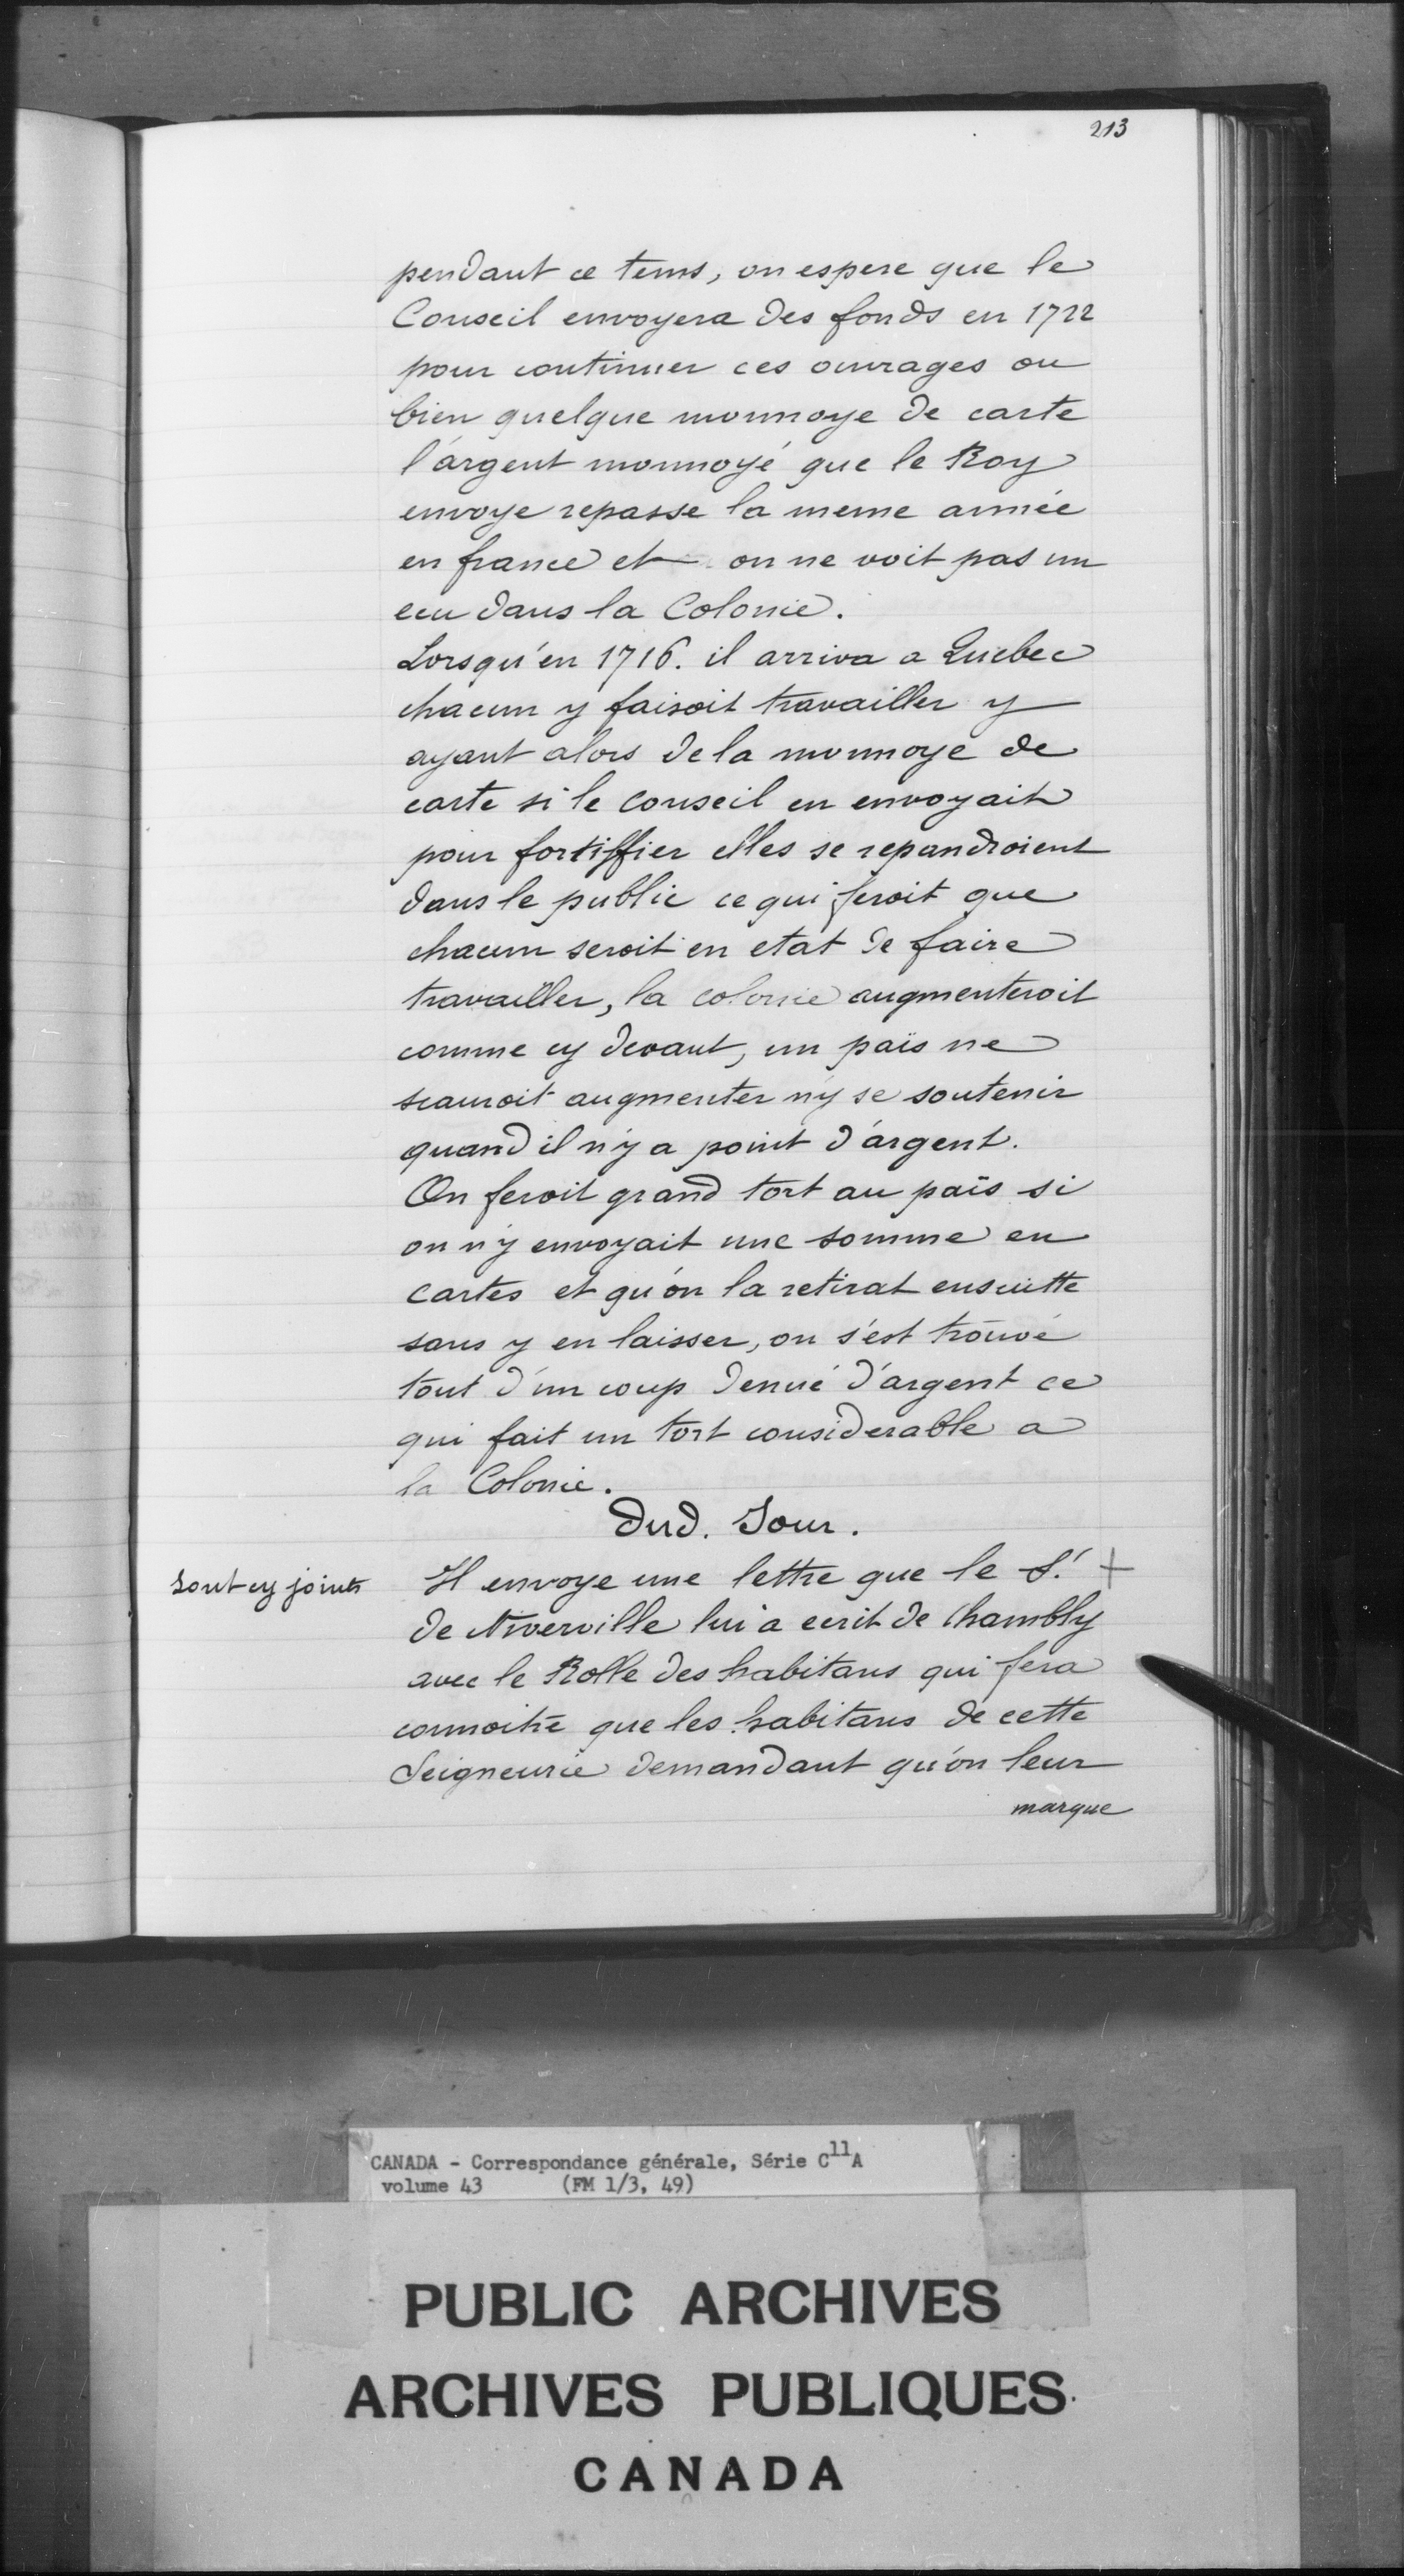 213
pendant ce tems, on espere que le
Conseil envoyera des fonds en 1722
pour continuer ces ouvrages ou
bien quelque monnoye de carte
l'argent monnoyé que le Roy
envoye repasse la meme année
en france et on ne voit pas un
ecu dans la Colonie.
Lorsqu'en 1716. il arriva a Quebec
chacun y faisoit travailler y
ayant alors de la monnoye de
carte si le conseil en envoyait
pour fortiffier elles se repandroient
dans le public ce qui feroit que
chacun seroit en etat de faire
travailler, la colonie augmenteroit
comme cy devant, un païs ne
scauroit augmenter n'y se soutenir
quand il n'y a point d'argent.
On feroit grand tort au païs si
on n'y envoyait une somme en
cartes et qu'on la retirat ensuitte
sans y en laisser, on s'est trouvé
tout d'un coup denué d'argent ce
qui fait un tort considerable a
la Colonie.
Dud. Jour.
sont cy joints
Il envoye une lettre que le S.r +
de Niverville lui a ecrit de Chambly
avec le Rolle des habitans qui fera
connoitre que les habitans de cette
Seigneurie demandant qu'on leur
marque
CANADA - Correspondance générale, Série C11A
volume 43 (FM 1/3, 49)
PUBLIC ARCHIVES
ARCHIVES PUBLIQUES
CANADA